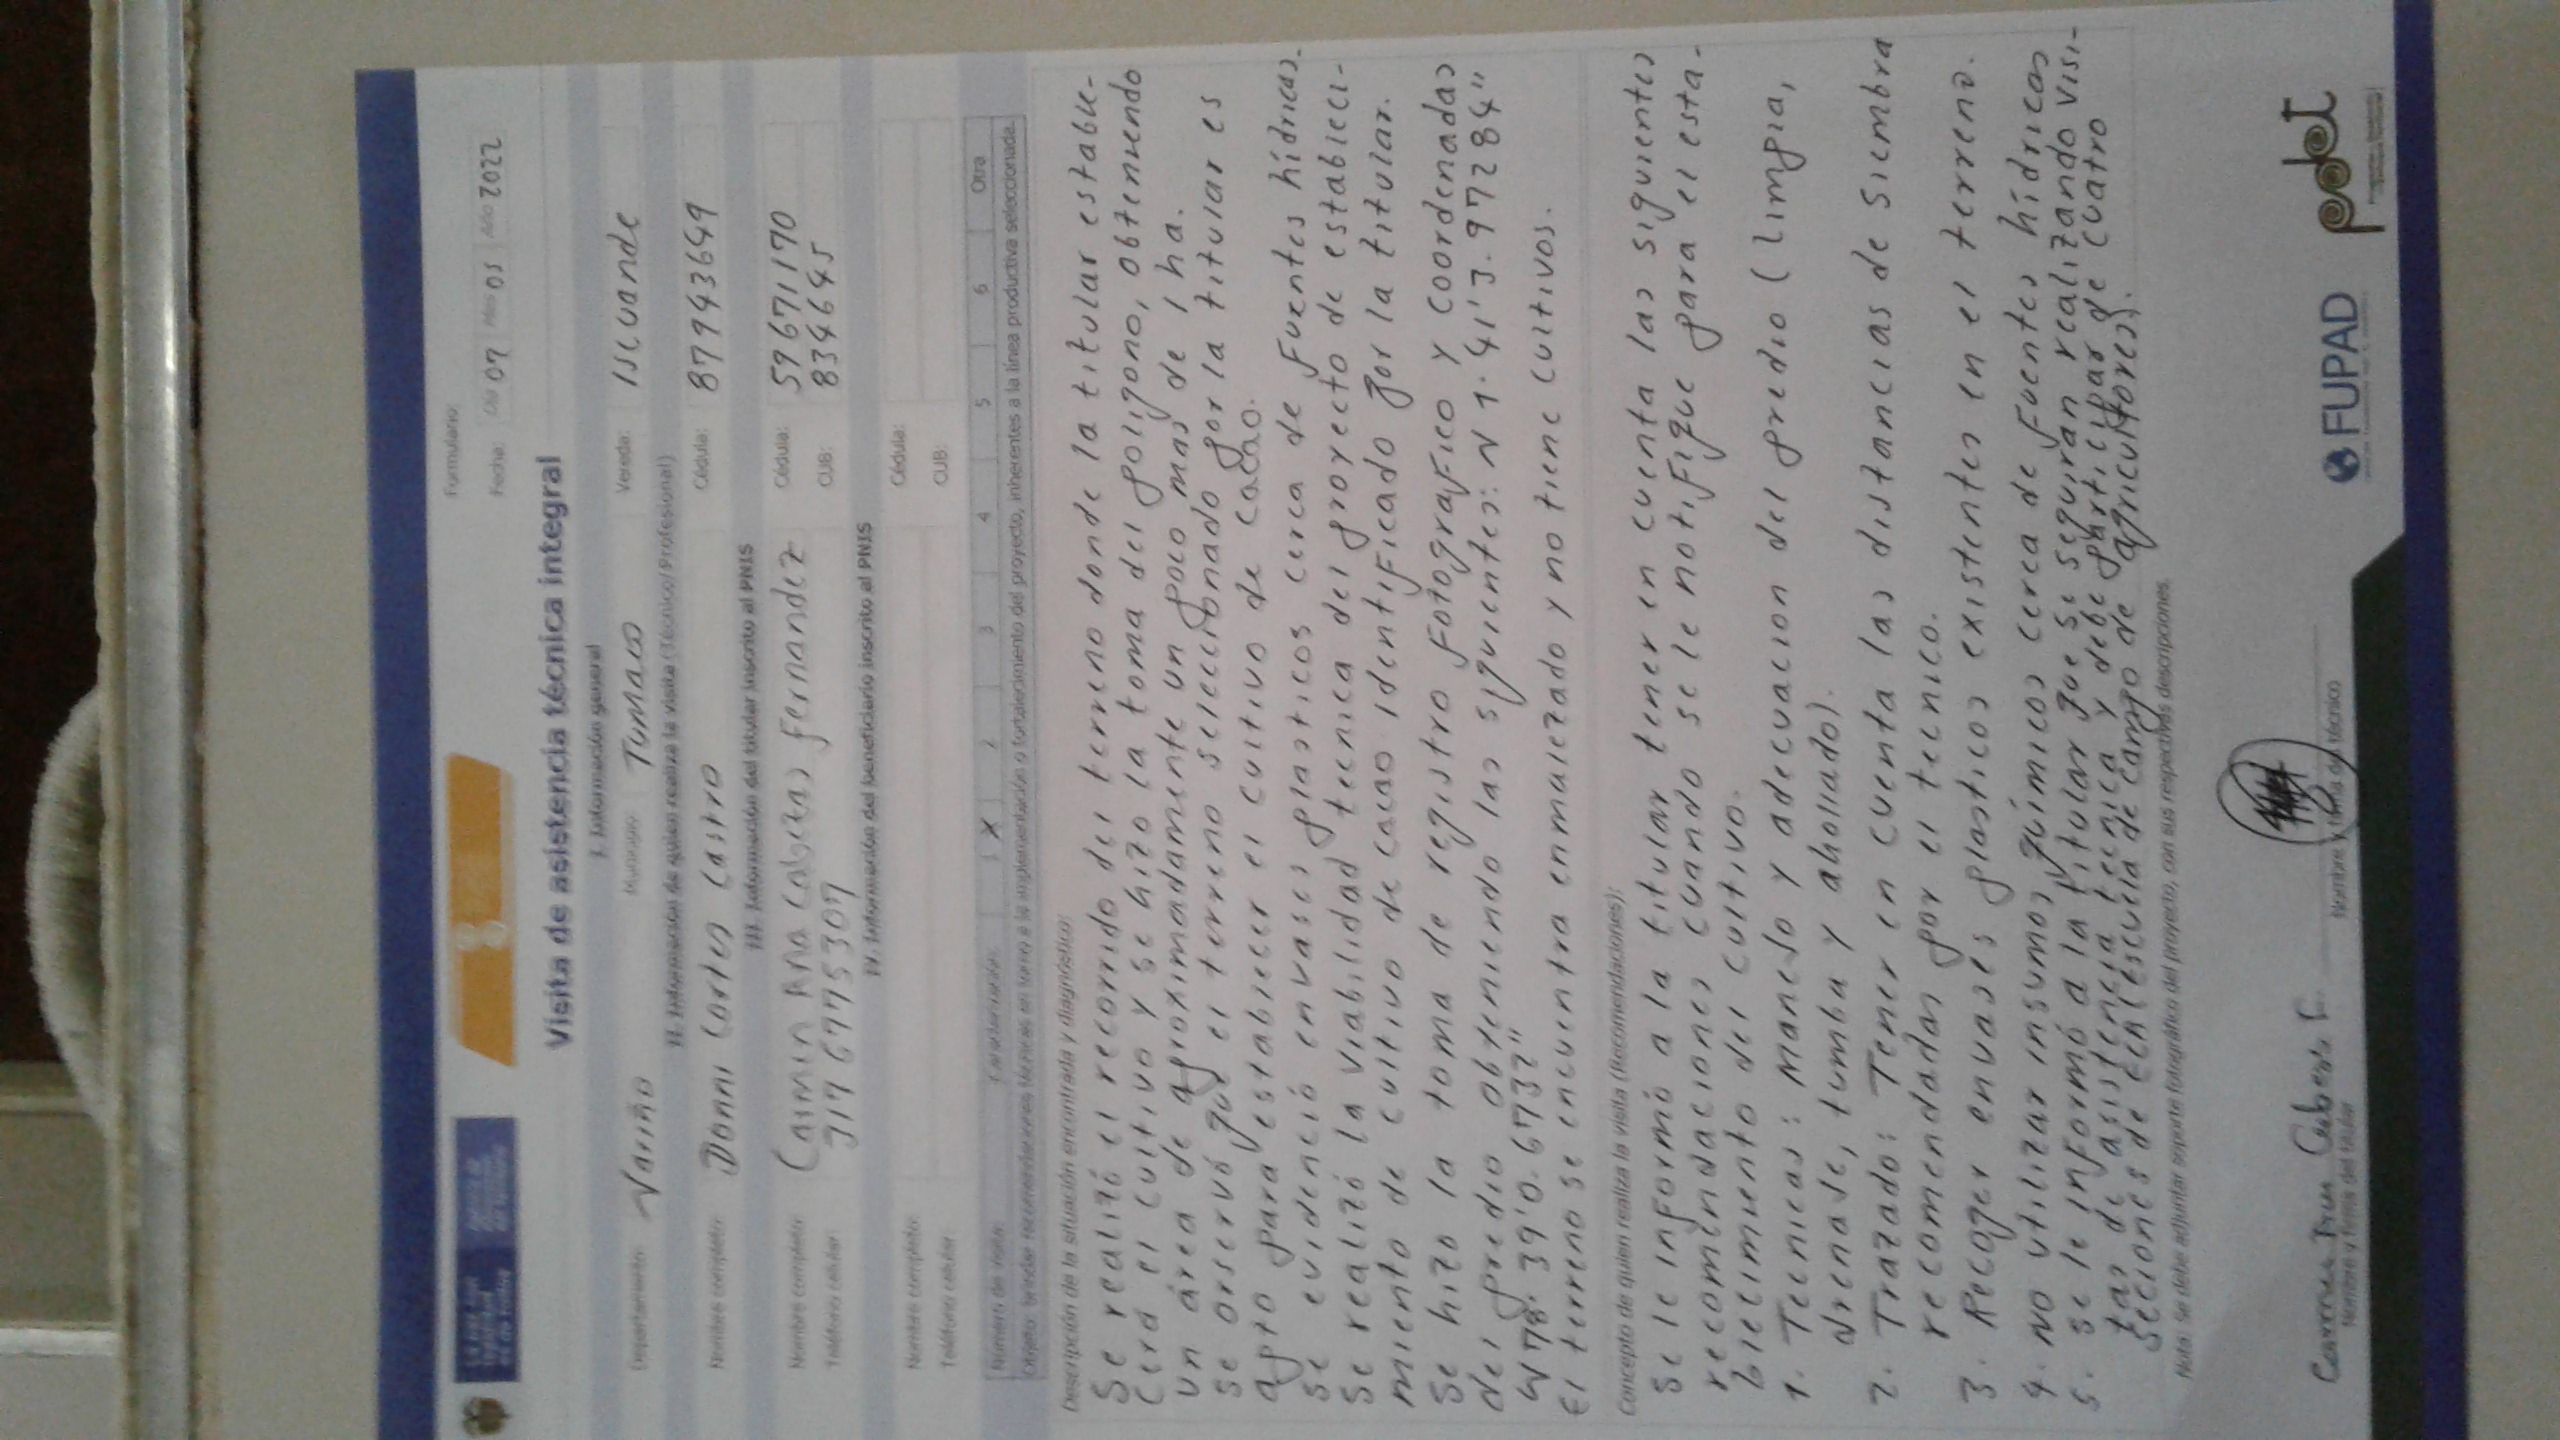 Formulario:
Fecha: Día 07 Mes 05 Año 2022
Visita de asistencia técnica integral
I. Información general
Departamento: Nariño Municipio: Tumaco Vereda: Iscuande
II. Información de quien realiza la visita (Técnico/Profesional)
Nombre completo: Donni Cortes Castro Cédula: 87943649
III. Información del titular inscrito al PNIS
Nombre completo: Carmen Ana Cabezas Fernandez Cédula: 59671170
Teléfono celular: 3176775307 CUB: 834645
IV. Información del beneficiario inscrito al PNIS
Nombre completo: Cédula:
Teléfono celular: CUB:
Número de visita: Caracterización: 1 X 2 3 4 5 6 Otra
Objeto: brindar recomendaciones técnicas en torno a la implementación o fortalecimiento del proyecto, inherentes a la línea productiva seleccionada.
Descripción de la situación encontrada y diagnóstico:
Se realizó el recorrido del terreno donde la titular estable-
cerá el cultivo y se hizo la toma del poligono, obteniendo
un área de aproximadamente un poco mas de 1 ha.
Se onservó que el terreno seleccionado por la titular es
apto para establecer el cultivo de cacao.
Se evidenció envases plasticos cerca de fuentes hídricas.
Se realizó la viabilidad tecnica del proyecto de estableci-
miento de cultivo de cacao identificado por la titular.
Se hizo la toma de registro fotografico y coordenadas
del predio obteniendo las siguientes: N 1. 41'3.97284"
W78. 39'0.6732"
El terreno se encuentra enmalezado y no tiene cultivos.
Concepto de quien realiza la visita (Recomendaciones):
Se le informó a la titular tener en cuenta las siguientes
recomendaciones cuando se le notifique para el esta-
blecimiento del cultivo.
1. Tecnicas: Manejo y adecuacion del predio (limpia,
drenaje, tumba y ahollado).
2. Trazado: Tener en cuenta las distancias de siembra
recomendadas por el tecnico.
3. Recoger envases plasticos existentes en el terreno.
4. No utilizar insumos químicos cerca de fuentes hídricas
5. Se le informó a la titular que se seguiran realizando visi-
tas de asistencia tecnica y debe participar de cuatro
secciones de ECA (escuela de campo de agricultores).
Nota: Se debe adjuntar reporte fotográfico del proyecto, con sus respectivas descripciones.
Carmen Ana Cabezas F.
Nombre y firma del titular Nombre y firma del técnico
FUPAD pdet